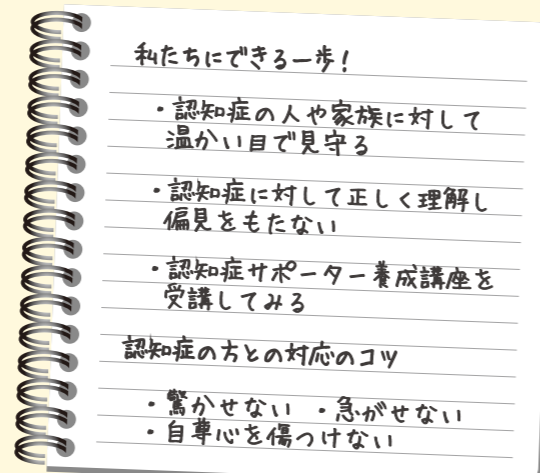 私たちにできる一歩!
・認知症の人や家族に対して
温かい目で見守る
・認知症に対して正しく理解し
偏見をもたない
・認知症サポーター養成講座を
受講してみる
認知症の方との対応のコツ
・驚かせない ・急がせない
・自尊心を傷つけない